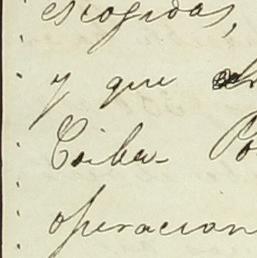 escogidas,
y que
Coiba- Po
operacion